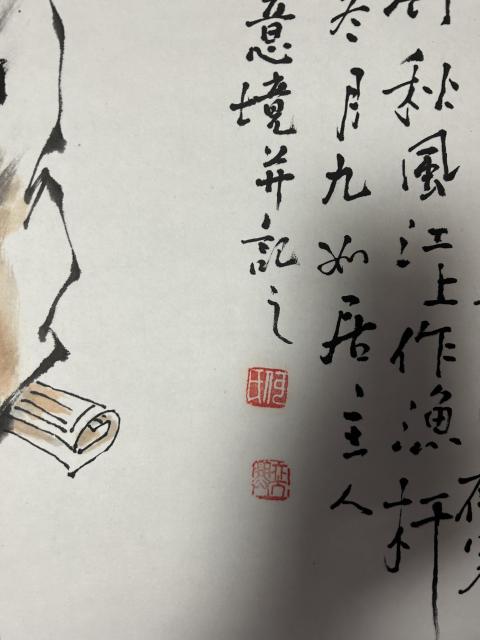 秋風江上作漁杆
冬月九如居主人
意境并記之
何氏